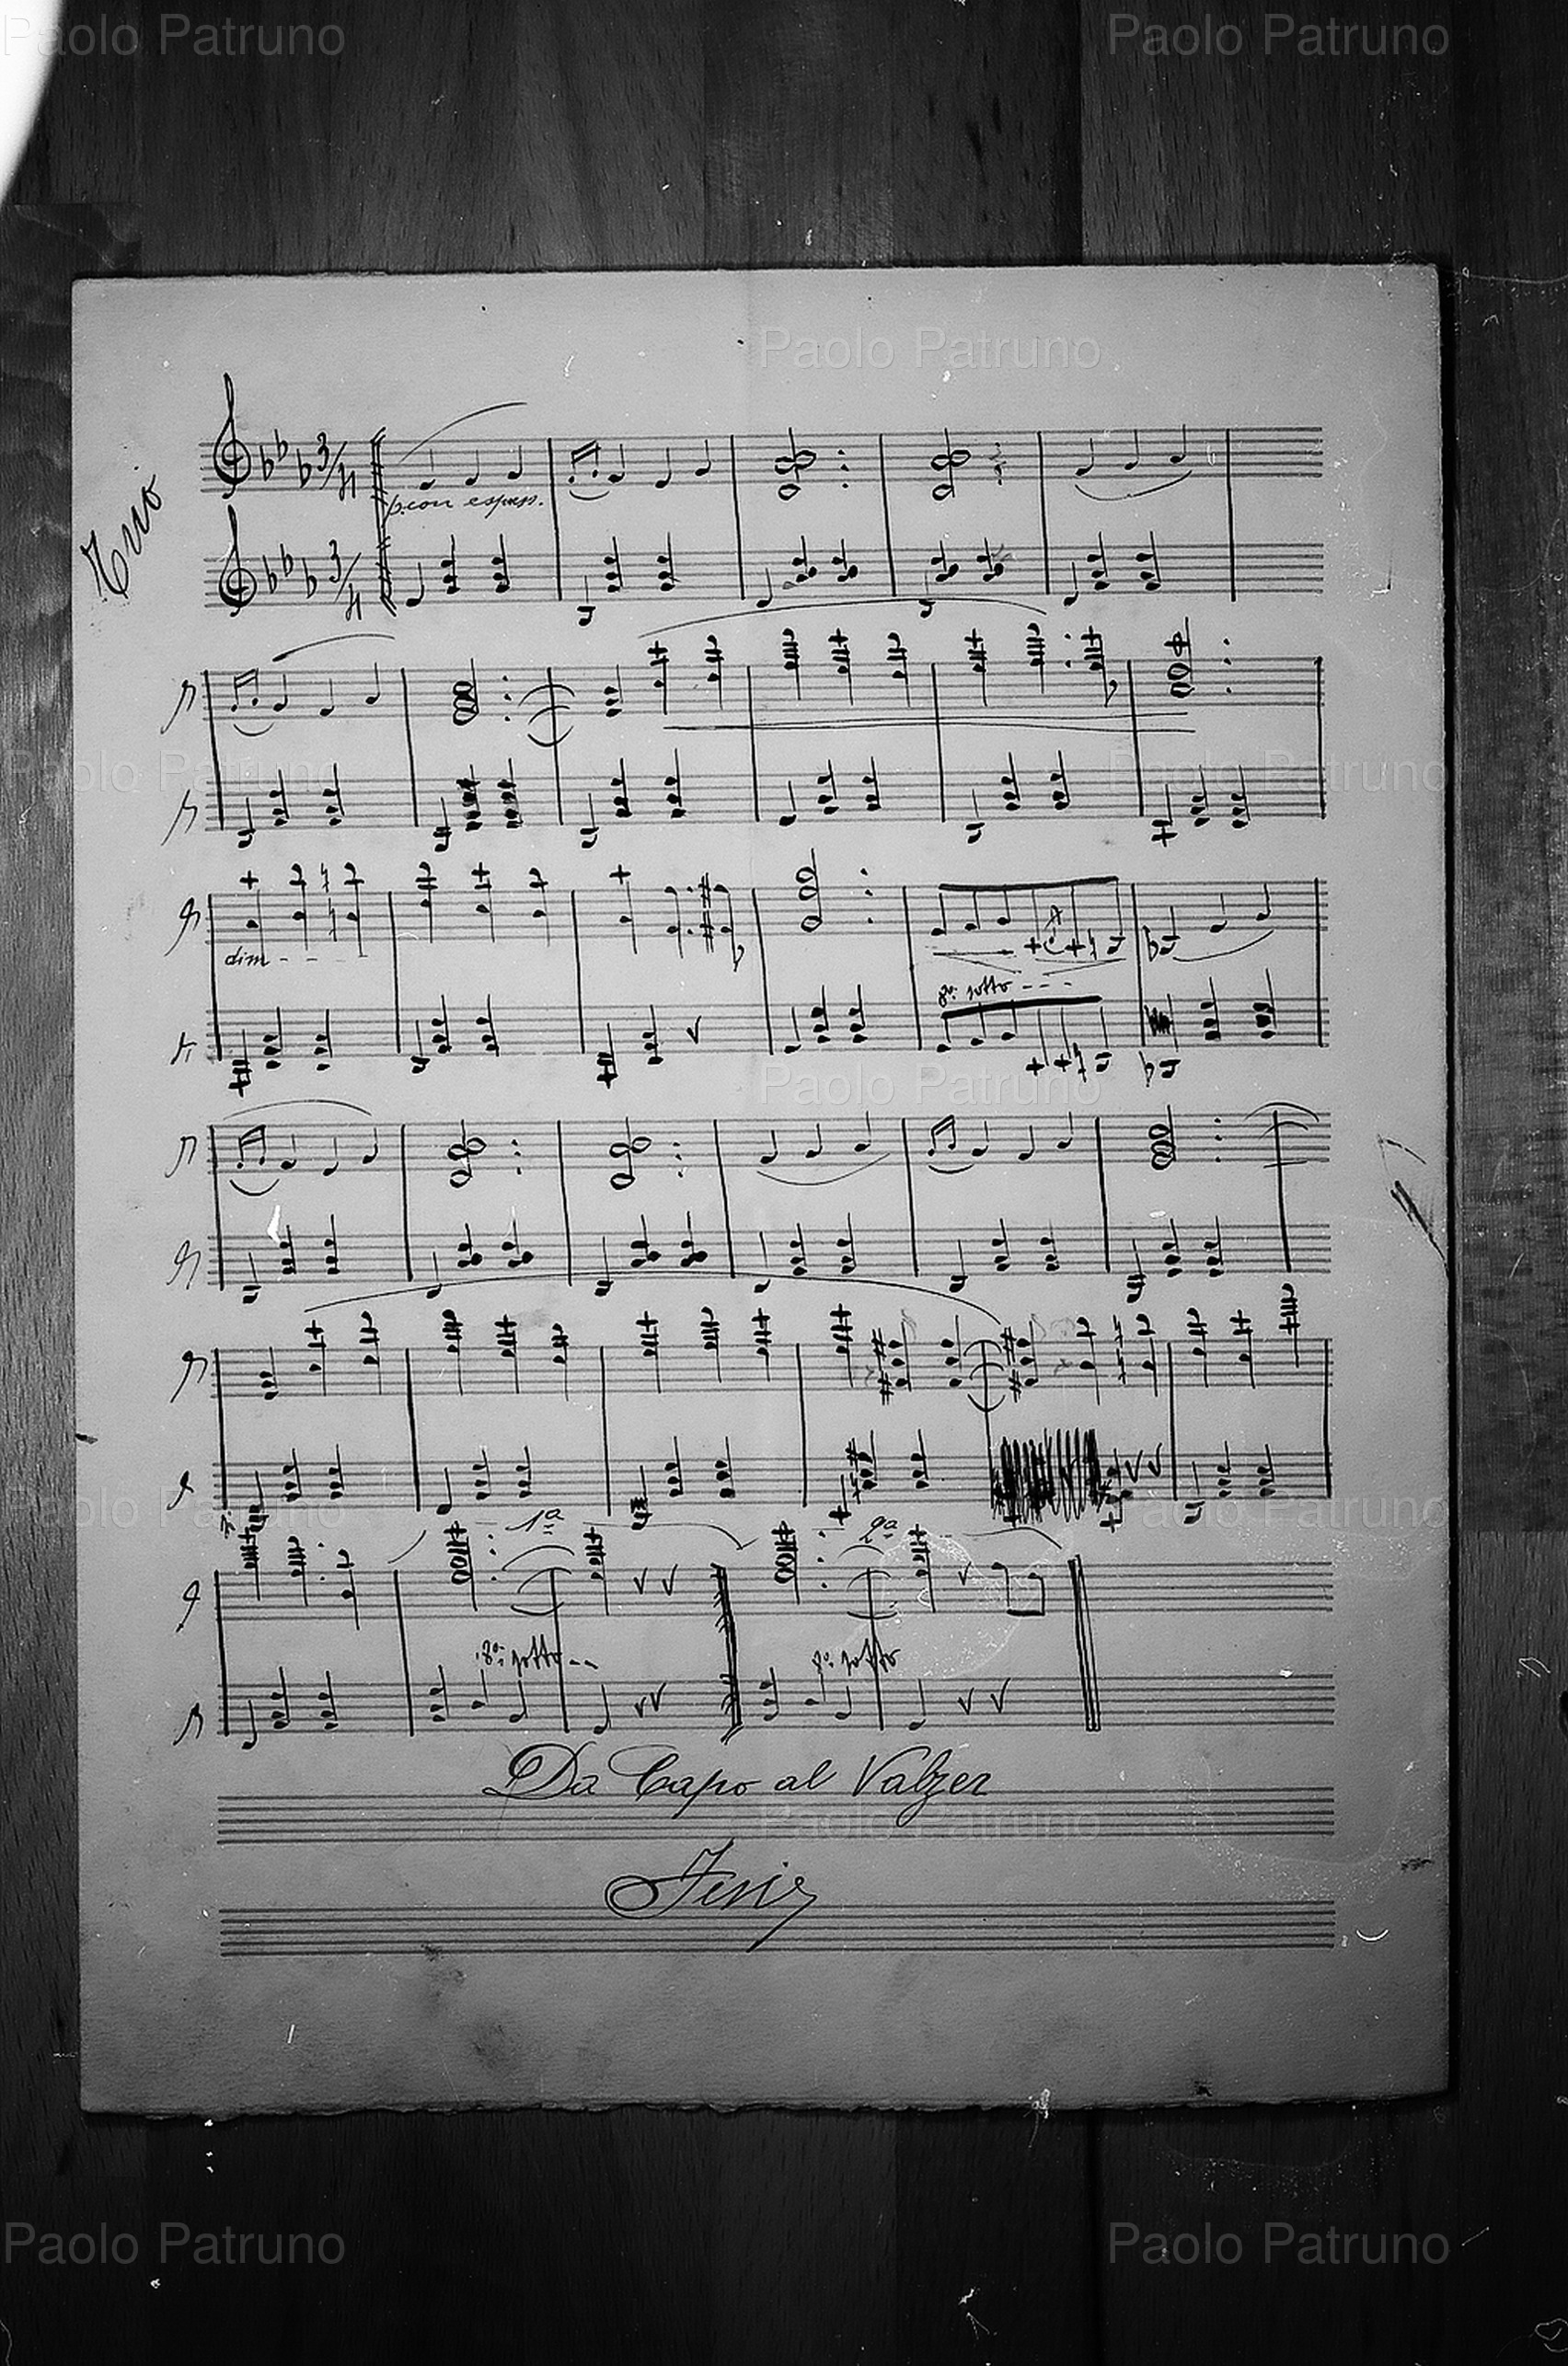 Paolo Patruno Paolo Patruno
Paolo Patruno
Trio
3/4
p. con espress.
3/4
Paolo Patruno Paolo Patruno
dim - - -
8a: sotto - - -
Paolo Patruno
Paolo Patruno Paolo Patruno
1a 2a
8a: sotto - - 8a: sotto
Da Capo al Valzer
Paolo Patruno
Paolo Patruno Paolo Patruno